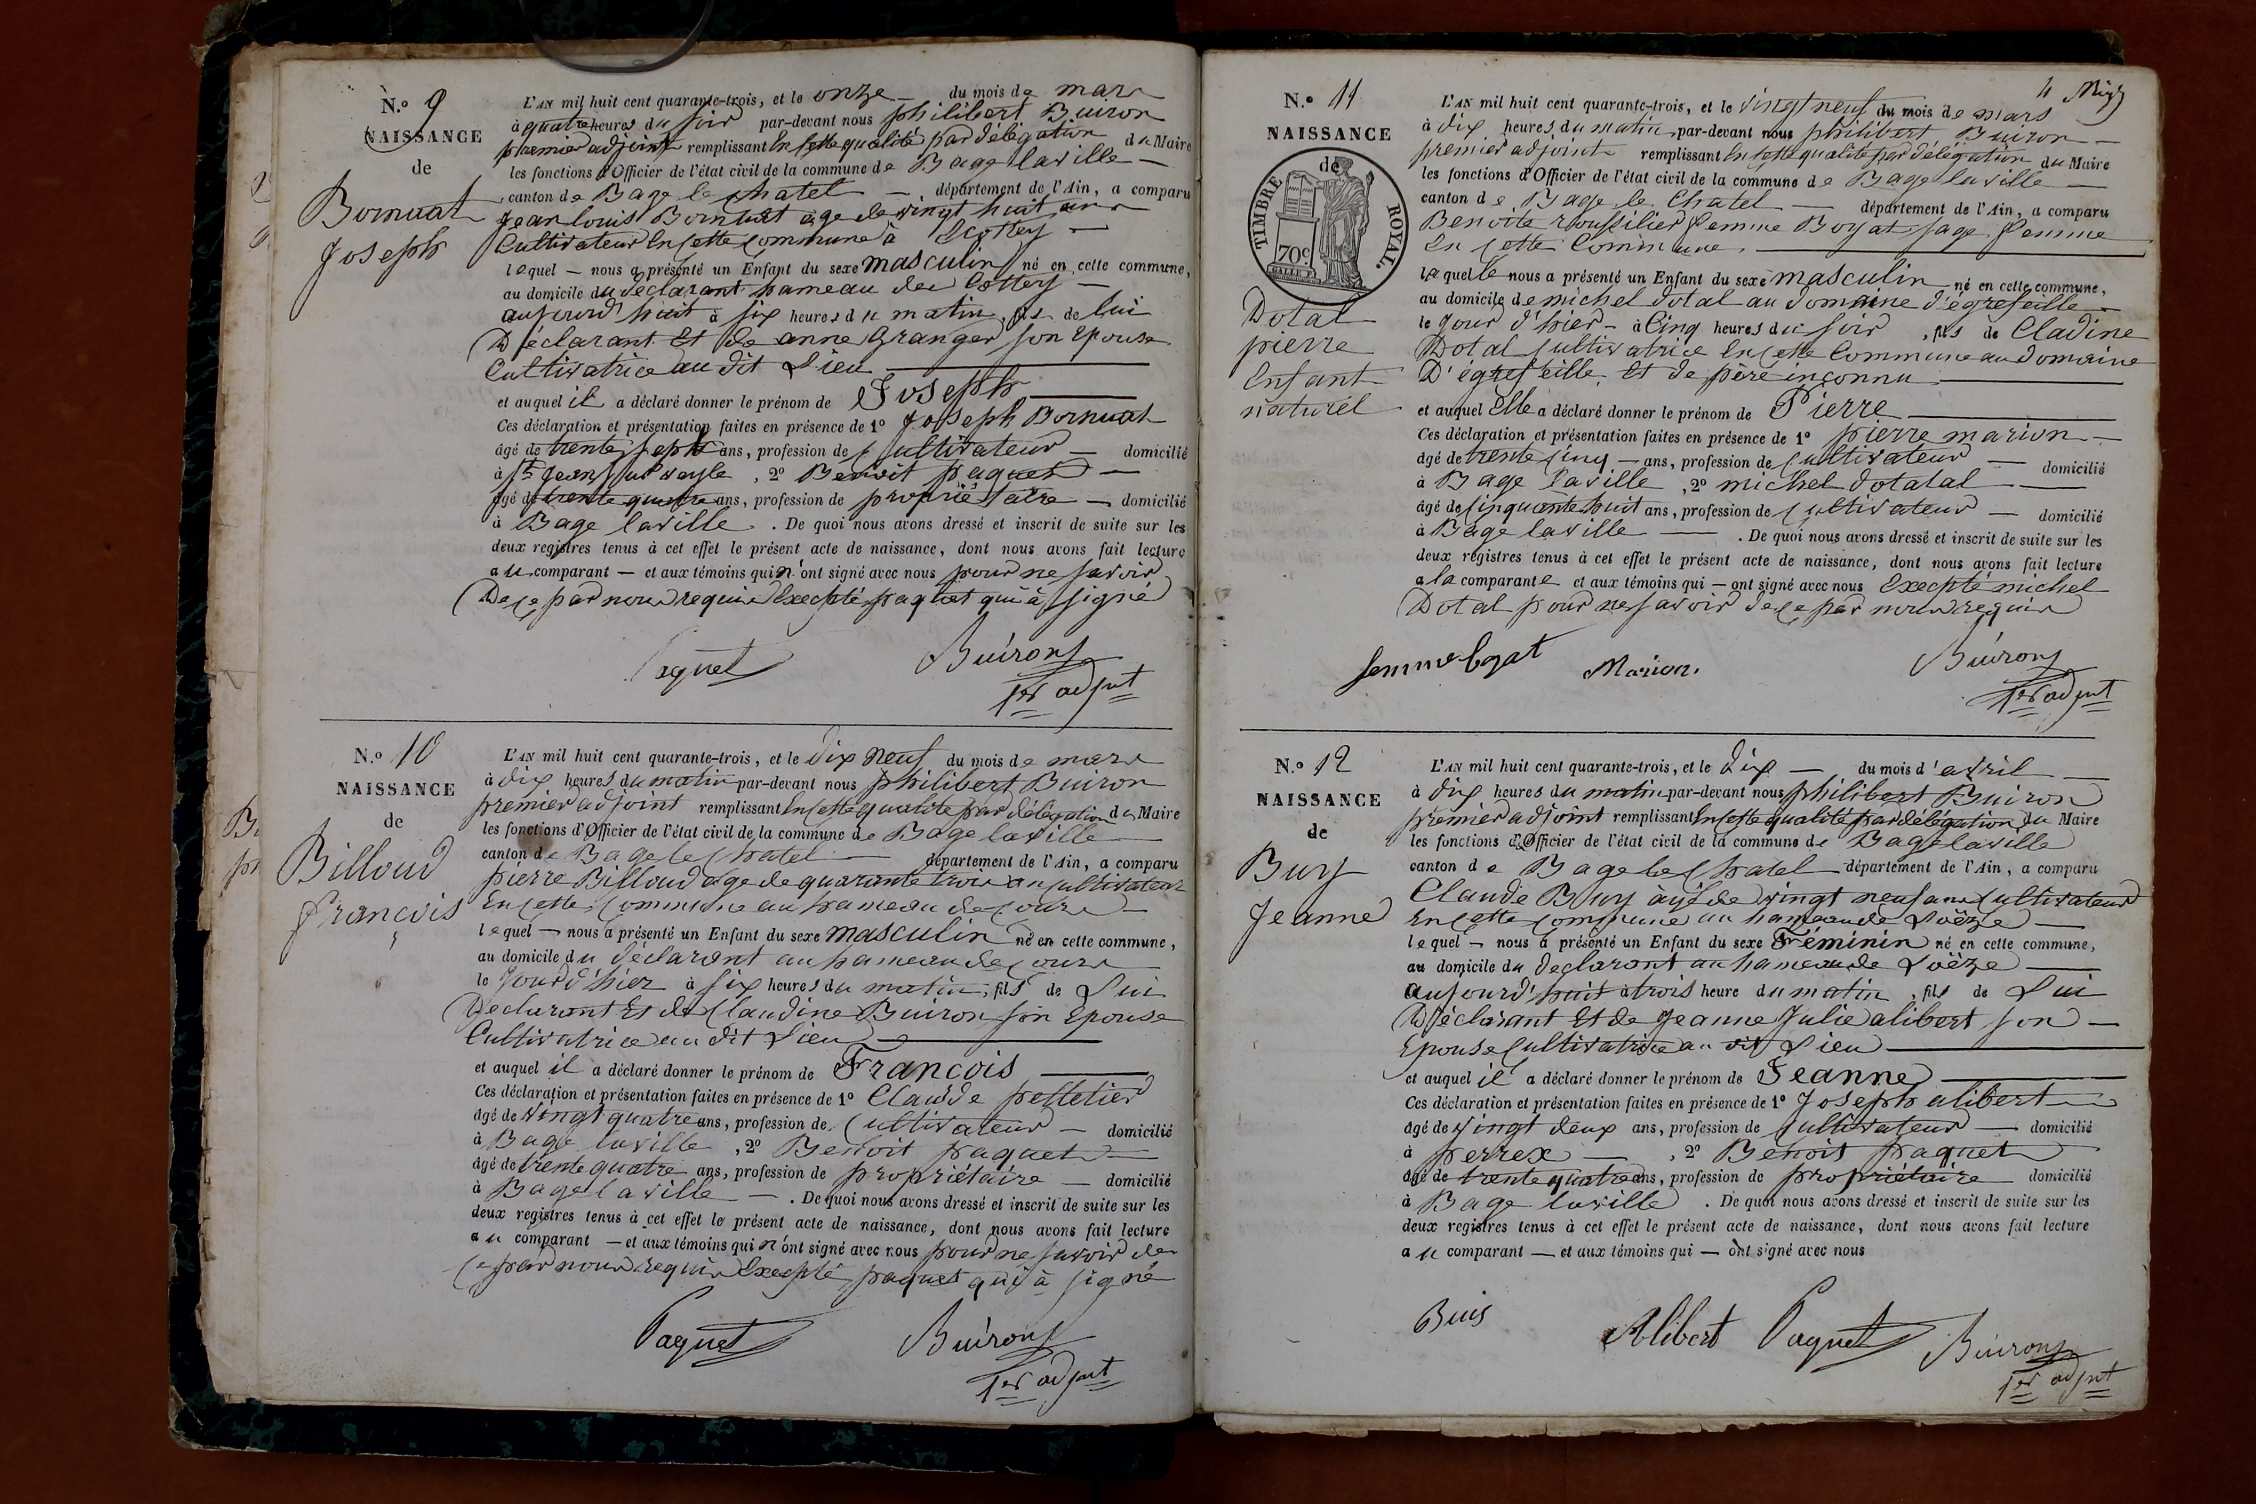 N.o 9
NAISSANCE
de
Bornuat
Joseph
L'AN mil huit cent quarante-trois, et le onze du mois de mars
à quatre heures du soir par-devant nous philibert Buiron
premier adjoint remplissant en cette qualité par délégation du Maire
les fonctions d'Officier de l'état civil de la commune de Bage laville
canton de Bage le chatel département de l'Ain, a comparu
Jean louis Bornuat age de vingt huit ans
Cultivateur En cette Commune à
lequel nous a présenté un Enfant du sexe masculin né en cette commune,
au domicile du déclarant hameau des Cottey
aujourd'huit à six heures du matin, fils de lui
Déclarant Et de anne Granger son Epouse
Cultivatrice au dit Lieu
et auquel il a déclaré donner le prénom de Joseph
Ces déclaration et présentation faites en présence de 1o Joseph Bornuat
âgé de trente sept ans, profession de Cultivateur domicilié
à St Jean sur veyle, 2o Benoit paquet
âgé de trente quatre ans, profession de propriétaire domicilié
à Bage laville. De quoi nous avons dressé et inscrit de suite sur les
deux registres tenus à cet effet le présent acte de naissance, dont nous avons fait lecture
au comparant et aux témoins qui n'ont signé avec nous pour ne savoir
De ce par nous requis Excepté paquet qui à signé
Paquet Buiron
1er adjnt
N.o 10
NAISSANCE
de
Billoud
françois
L'AN mil huit cent quarante-trois, et le dix neuf du mois de mars
à dix heures du matin par-devant nous philibert Buiron
premier adjoint remplissant en cette qualité par délégation du Maire
les fonctions d'Officier de l'état civil de la commune de Bage laville
canton de Bage le Chatel département de l'Ain, a comparu
pierre Billoud age de quarante trois an cultivateur
En cette Commune au hameau de
lequel nous a présenté un Enfant du sexe masculin né en cette commune,
au domicile du déclarant au hameau de
le Jour d'hier à six heures du matin, fils de Lui
Declarant Et de Claudine Buiron son Epouse
Cultivatrice au dit Lieu
et auquel il a déclaré donner le prénom de Francois
Ces déclaration et présentation faites en présence de 1o Claude pelletier
âgé de vingt quatre ans, profession de Cultivateur domicilié
à Bage laville, 2o Benoit paquet
âgé de trente quatre ans, profession de propriétaire domicilié
à Bage laville. De quoi nous avons dressé et inscrit de suite sur les
deux registres tenus à cet effet le présent acte de naissance, dont nous avons fait lecture
au comparant et aux témoins qui n'ont signé avec nous pour ne savoir de
Ce par nous requis Excepté paquet qui à signé
Paquet Buiron
1er adjnt
4
N.o 11
NAISSANCE
de
TIMBRE ROYAL.
70c
Dotal
pierre
Enfant
naturel
L'AN mil huit cent quarante-trois, et le vingt neuf du mois de mars
à dix heures du matin par-devant nous philibert Buiron
premier adjoint remplissant En cette qualité par délégation du Maire
les fonctions d'Officier de l'état civil de la commune de Bage laville
canton de Bage le Chatel département de l'Ain, a comparu
Benoite roussilier femme Boyat sage femme
En cette Commune
laquelle nous a présenté un Enfant du sexe masculin né en cette commune,
au domicile de michel dotal au domaine d'égrefeille
le Jour d'hier à Cinq heures du soir, fils de Cladine
Dotal Cultivatrice En cette Commune au domaine
D'égrefeille Et de père inconnu
et auquel Elle a déclaré donner le prénom de Pierre
Ces déclaration et présentation faites en présence de 1o pierre marion
âgé de trente cinq ans, profession de Cultivateur domicilié
à Bage laville, 2o michel dotatal
âgé de Cinquante huit ans, profession de Cultivateur domicilié
à Bage laville. De quoi nous avons dressé et inscrit de suite sur les
deux registres tenus à cet effet le présent acte de naissance, dont nous avons fait lecture
a la comparante et aux témoins qui ont signé avec nous Excepté michel
Dotal pour ne savoir de ce par nous requis
femme boyat Marion. Buiron
1er adjnt
N.o 12
NAISSANCE
de
Buy
Jeanne
L'AN mil huit cent quarante-trois, et le dix du mois d'avril
à dix heures du matin par-devant nous philibert Buiron
premier adjoint remplissant En cette qualité par délégation du Maire
les fonctions d'Officier de l'état civil de la commune de Bage laville
canton de Bage le Chatel département de l'Ain, a comparu
Claude Buy agé de vingt neuf ans Cultivateur
En cette commune au hameau de Loëze
lequel nous a présenté un Enfant du sexe Féminin né en cette commune,
au domicile du declarant au hameau de Loëze
aujourd'huit à trois heure du matin, fils de Lui
Déclarant Et de Jeanne Julie alibert son
Epouse Cultivatrice au dit Lieu
et auquel il a déclaré donner le prénom de Jeanne
Ces déclaration et présentation faites en présence de 1o Joseph alibert
âgé de vingt deux ans, profession de Cultivateur domicilié
à perrex, 2o Benoit paquet
âgé de trente quatre ans, profession de propriétaire domicilié
à Bage laville. De quoi nous avons dressé et inscrit de suite sur les
deux registres tenus à cet effet le présent acte de naissance, dont nous avons fait lecture
au comparant et aux témoins qui ont signé avec nous
Buis Alibert Paquet Buiron
1er adjnt